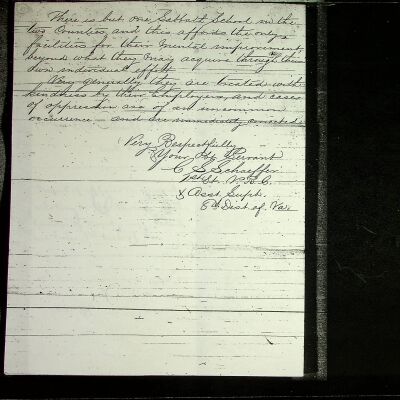 There is but one Sabbath School in the
two Counties, and this affords the only
facilities for their mental improvement,
beyond what they may acquire through their
own individual efforts.
Very generally they are treated with
kindness by their employers, and cases
of oppression are of an uncommon
occurrence and are immediately corrected.
Very Respectfully
Your Obt Servant
C S Schaeffer
1st Lt. V.R.C.
& Asst. Supt.
8th Dist of Va.